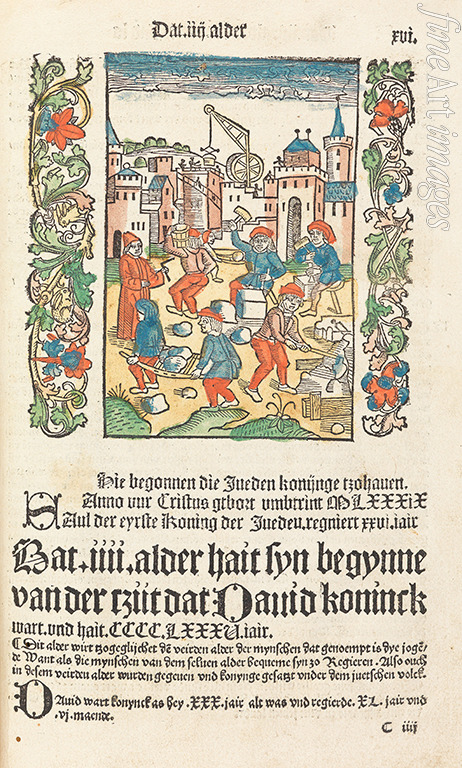 Dat .iiij alder
xvi.
Hie begonnen die Jueden konijnge tzohauen.
Anno vur Cristus gebort vmbtrint MLXXXiX
SAul der eyrste Koning der Jueden, regniert xxvi. iair
Dat .iiii. alder hait syn begynne
van der tzijt dat Dauid koninck
wart. vnd hait. CCCC. LXXXV. iair.
Dit alder wirt tzogeglichet de veirden alder der mynschen dat genoempt is dye joge
de Want als die mynschen van dem seluen alder bequeme syn zo Regieren. Also ouch
in desem veirden alder wurden gegeuen vnd konynge gesatzt vnder dem juetschen volck.
DAuid wart konynck as hey .XXX. jair alt was vnd regierde. XL. jair vnd
.vj. maende.
C iiij
fineArtimages